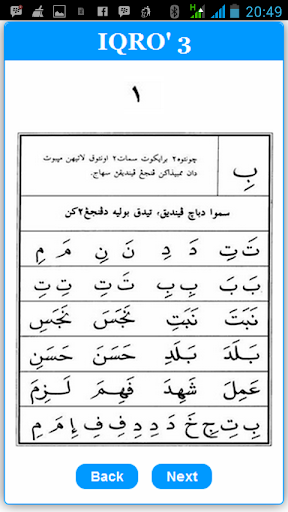 20:49
IQRO' 3
١
بِ
چونتوه٢ برايكوت سمات٢ اونتوق لاتيهن مپبوت
دان ممبيذاكن ڤنجڠ ڤينديقن سهاج.
سموا دباچ ڤينديق، تيدق بوليه دڤنجڠ٢كن
تَ تِ دَ دِ نَ نِ مَ مِ
بَ بَ بِ بِ تَ تَ تِ تِ
نَبَتَ نَبَتِ نَجَسَ نَجَسِ
بَلَدَ بَلَدِ حَسَنَ حَسَنِ
عَمِلَ شَهِدَ فَهِمَ لَزِمَ
بِ تِ جِ خَ دَ دِ دِ فِ فِ إِ مَ مِ
Back Next